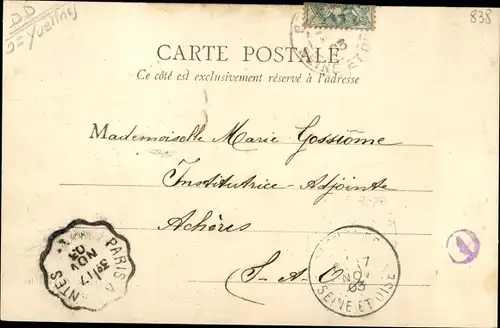 DD
D=Yvelines
838
CARTE POSTALE
Ce côté est exclusivement réservé à l'adresse
Mademoiselle Marie Gossiôme
Institutrice-Adjointe
Achères
S-A-O
PARIS A
NTES
3º/17
NOV
03
17
NOV
03
SEINE ET OISE
03
SEINE ET OISE